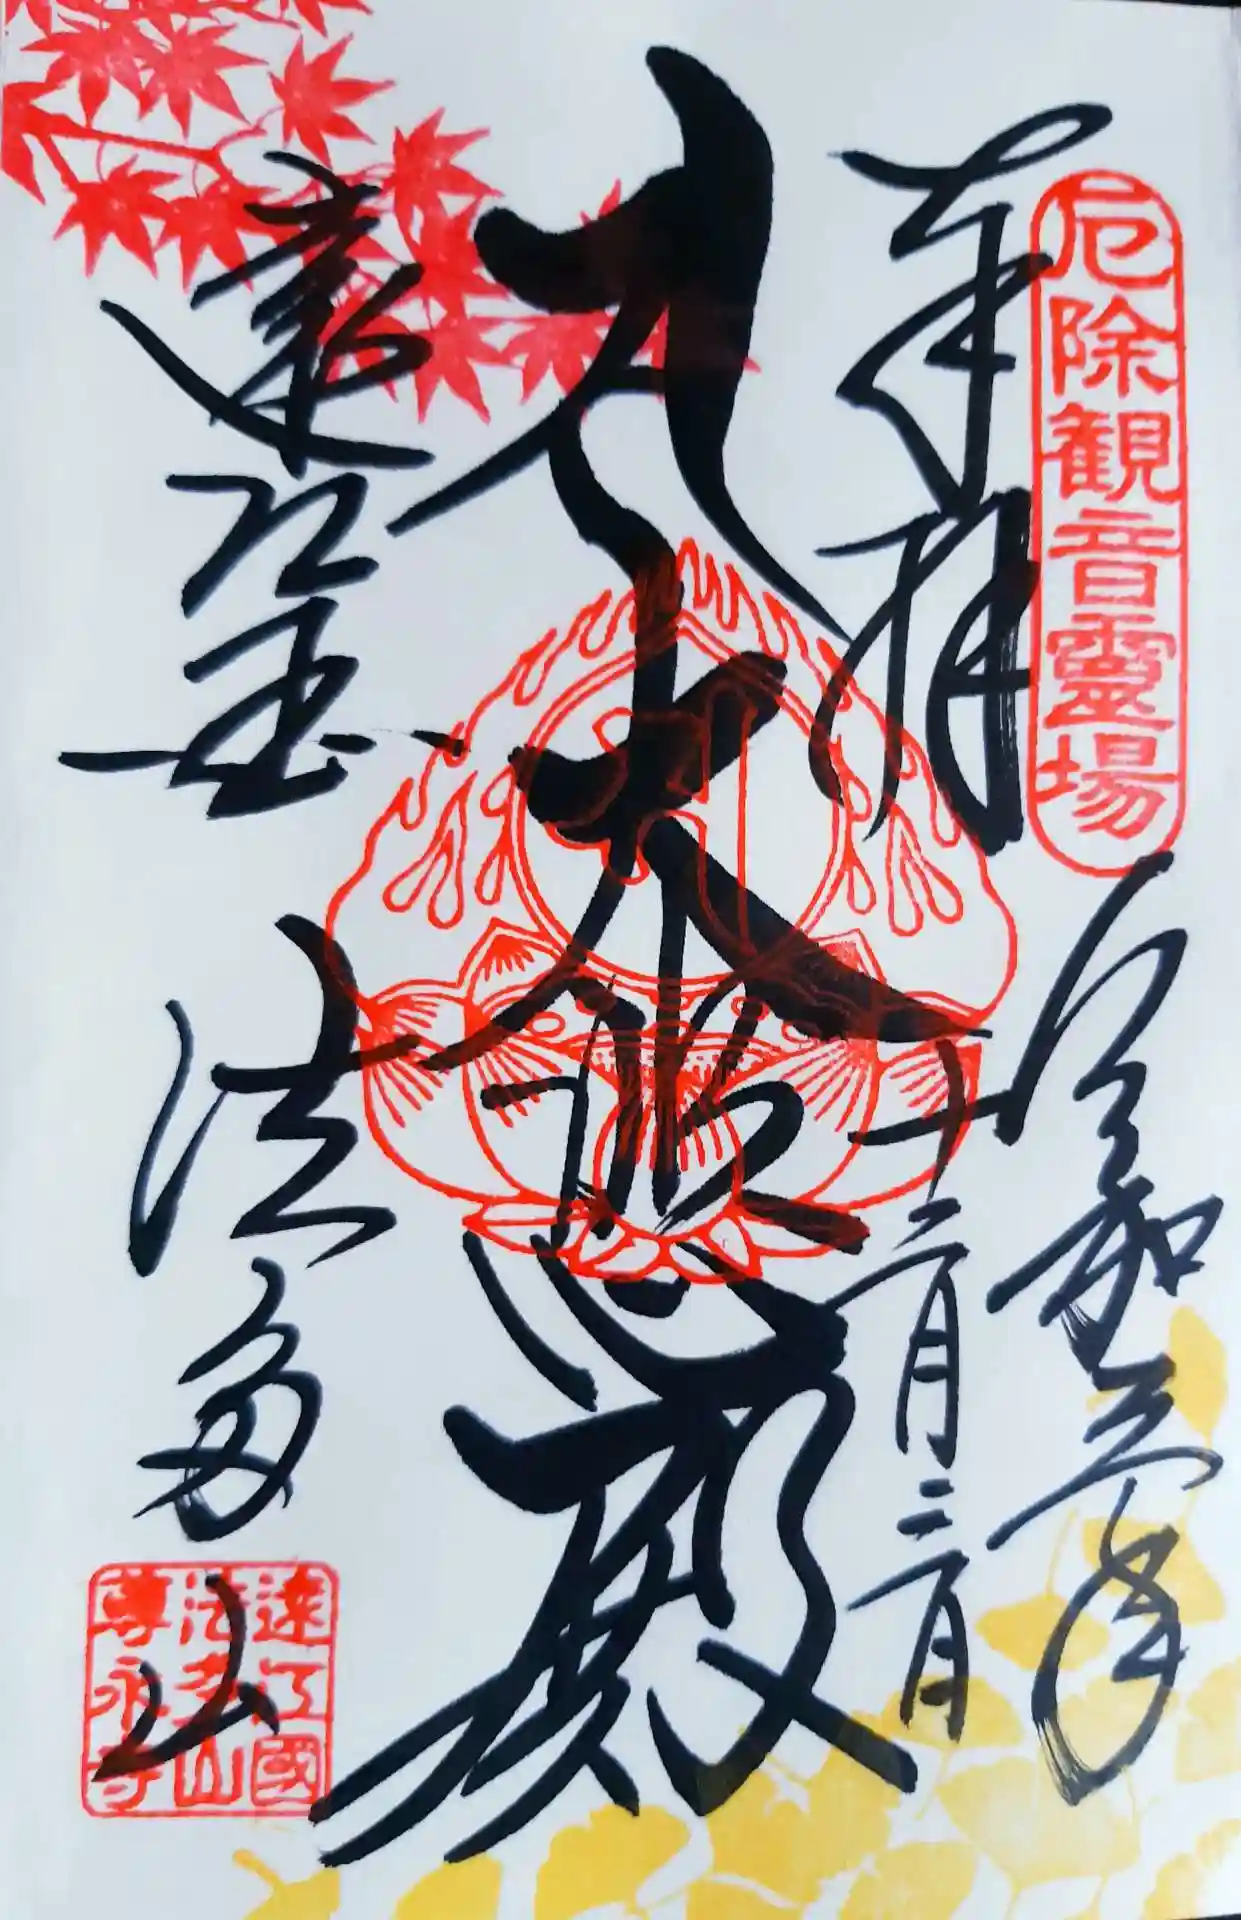 厄除観音霊場
奉拝
令和三年
十二月二日
大悲殿
遠江国
法多山
遠江國
法多山
尊永寺